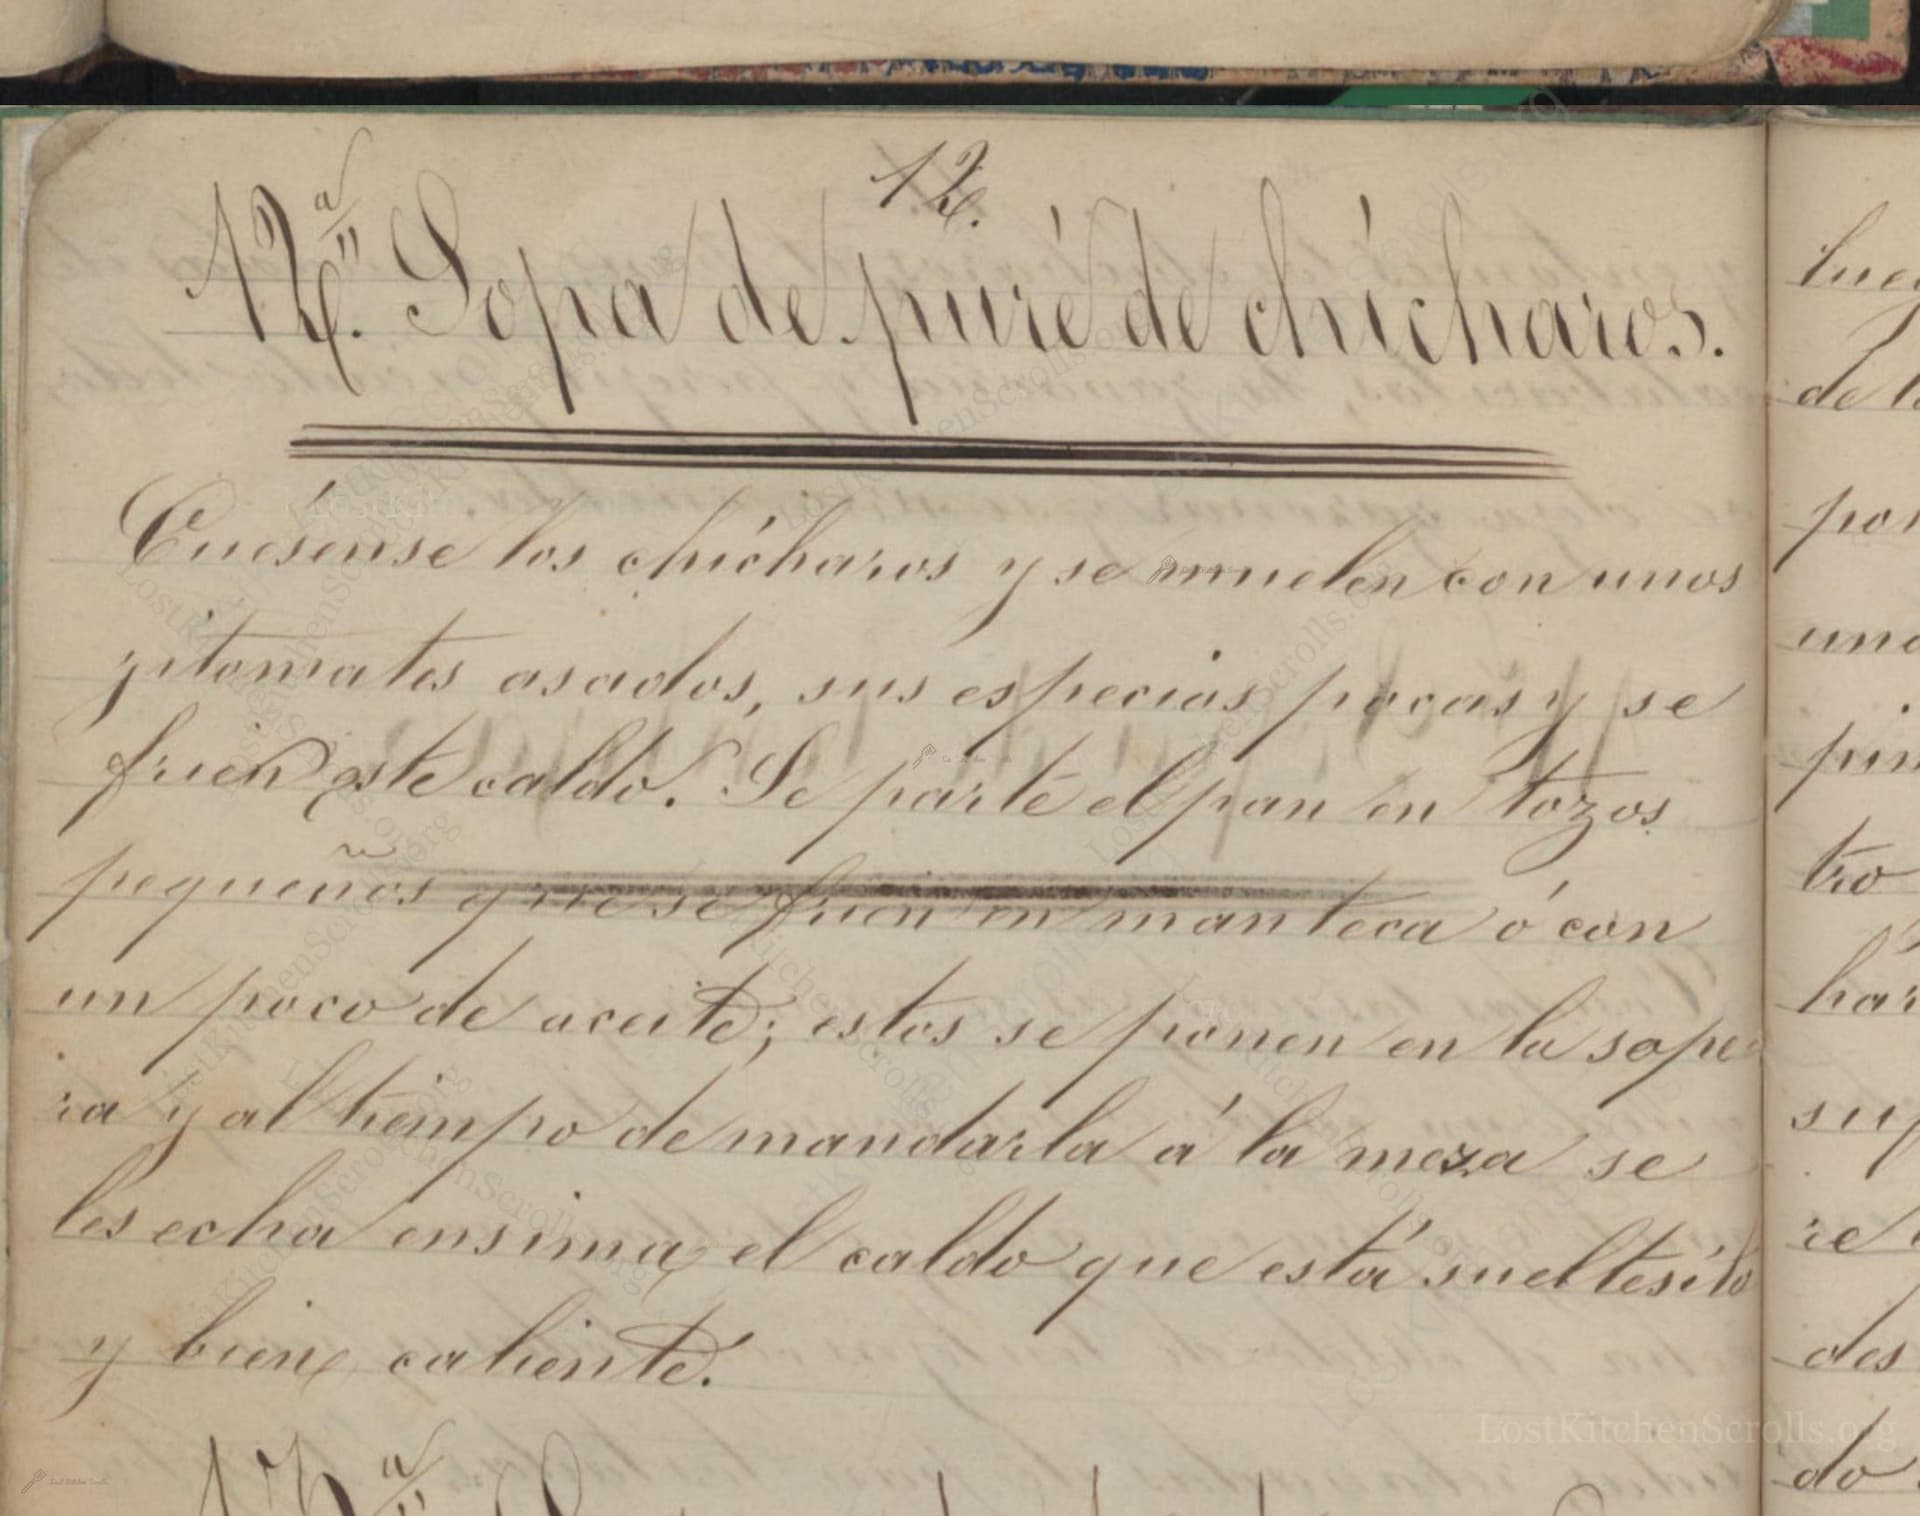 12.
12.ª Sopa de puré de chícharos.
Cuésense los chícharos y se muelen con unos
jitomates asados, sus especias pocas y se
frien este caldo. Se parte el pan en tozos
pequeños que se frien en manteca ó con
un poco de aceite; estos se ponen en la sope
ra y al tiempo de mandarla á la meza se
les echa ensima el caldo que está sueltesíto
y bien caliente.
de
por
una
tro
des
do
LostKitchenScrolls.org